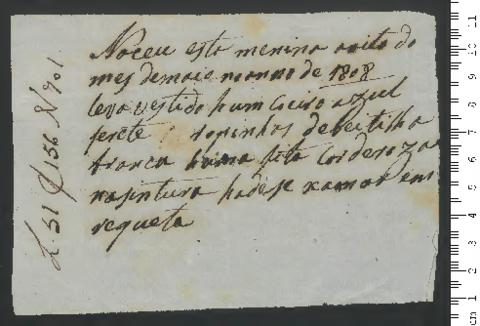 Naceu esta menina ouito do
mes de maio no anno de 1808
leva vestido hum coeiro azul
ferete, ropinhos de beitilha
branca huma fita cor de roza
na sintura hadese xamar em
requeta
L. 51 f 156 N 901